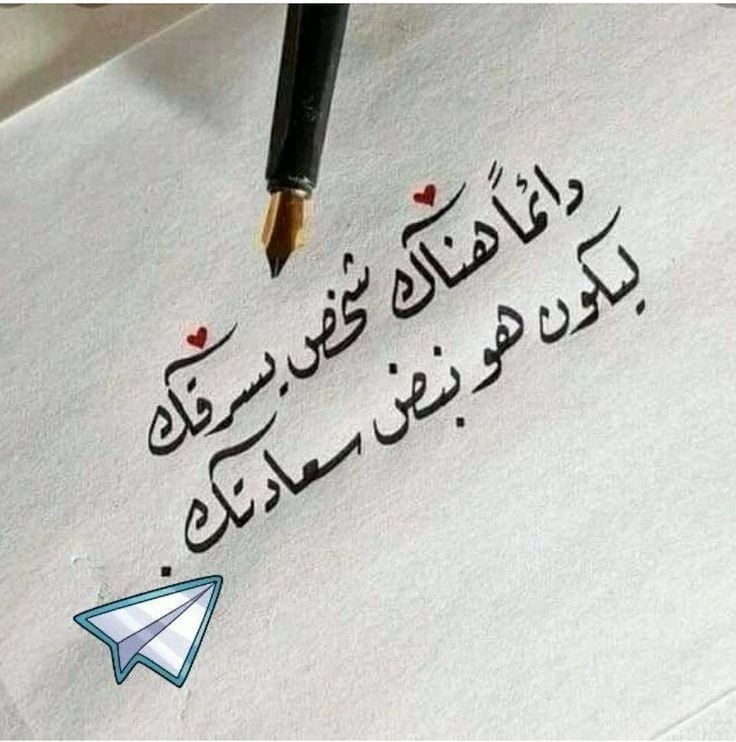 دائماً هناك شخص يسرقك
ليكون هو نبض سعادتك .